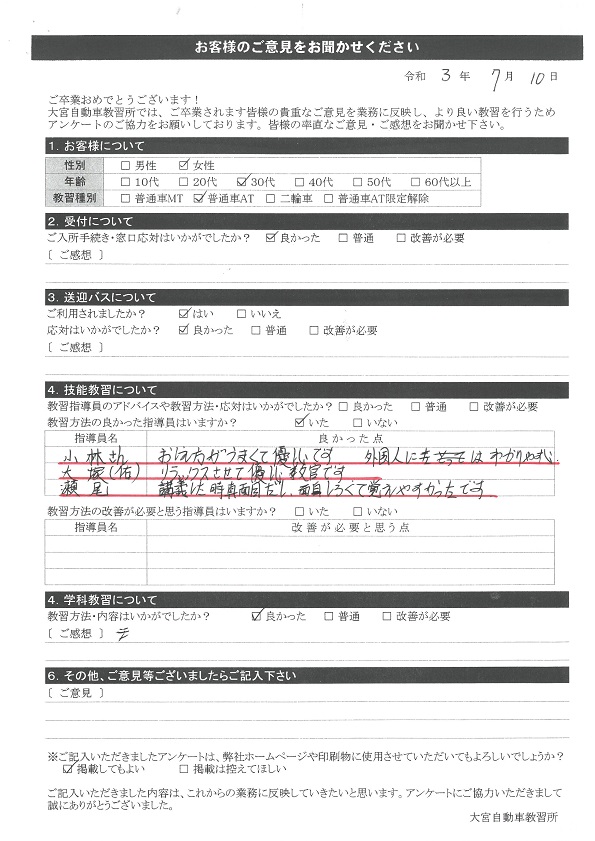 お客様のご意見をお聞かせください
令和 3 年 7 月 10 日
ご卒業おめでとうございます！
大宮自動車教習所では、ご卒業されます皆様の貴重なご意見を業務に反映し、より良い教習を行うため
アンケートのご協力をお願いしております。皆様の率直なご意見・ご感想をお聞かせ下さい。
1. お客様について
性別 □ 男性 ☑ 女性
年齢 □ 10代 □ 20代 ☑ 30代 □ 40代 □ 50代 □ 60代以上
教習種別 □ 普通車MT ☑ 普通車AT □ 二輪車 □ 普通車AT限定解除
2. 受付について
ご入所手続き・窓口応対はいかがでしたか？ ☑ 良かった □ 普通 □ 改善が必要
〔 ご感想 〕
3. 送迎バスについて
ご利用されましたか？ ☑ はい □ いいえ
応対はいかがでしたか？ ☑ 良かった □ 普通 □ 改善が必要
〔 ご感想 〕
4. 技能教習について
教習指導員のアドバイスや教習方法・応対はいかがでしたか？ □ 良かった □ 普通 □ 改善が必要
教習方法の良かった指導員はいますか？ ☑ いた □ いない
指導員名 良かった点
小林さん おしえ方がうまくて優しいです 外国人に はわかりやすい
大塚(佑) リラックスさせて優しい教官です
瀬尾 講義した時真面目だし、面白しろくて覚えやすかったです
教習方法の改善が必要と思う指導員はいますか？ □ いた □ いない
指導員名 改善が必要と思う点
4. 学科教習について
教習方法・内容はいかがでしたか？ ☑ 良かった □ 普通 □ 改善が必要
〔 ご感想 〕
6. その他、ご意見等ございましたらご記入下さい
〔 ご意見 〕
※ご記入いただきましたアンケートは、弊社ホームページや印刷物に使用させていただいてもよろしいでしょうか？
☑ 掲載してもよい □ 掲載は控えてほしい
ご記入いただきました内容は、これからの業務に反映していきたいと思います。アンケートにご協力いただきまして
誠にありがとうございました。
大宮自動車教習所